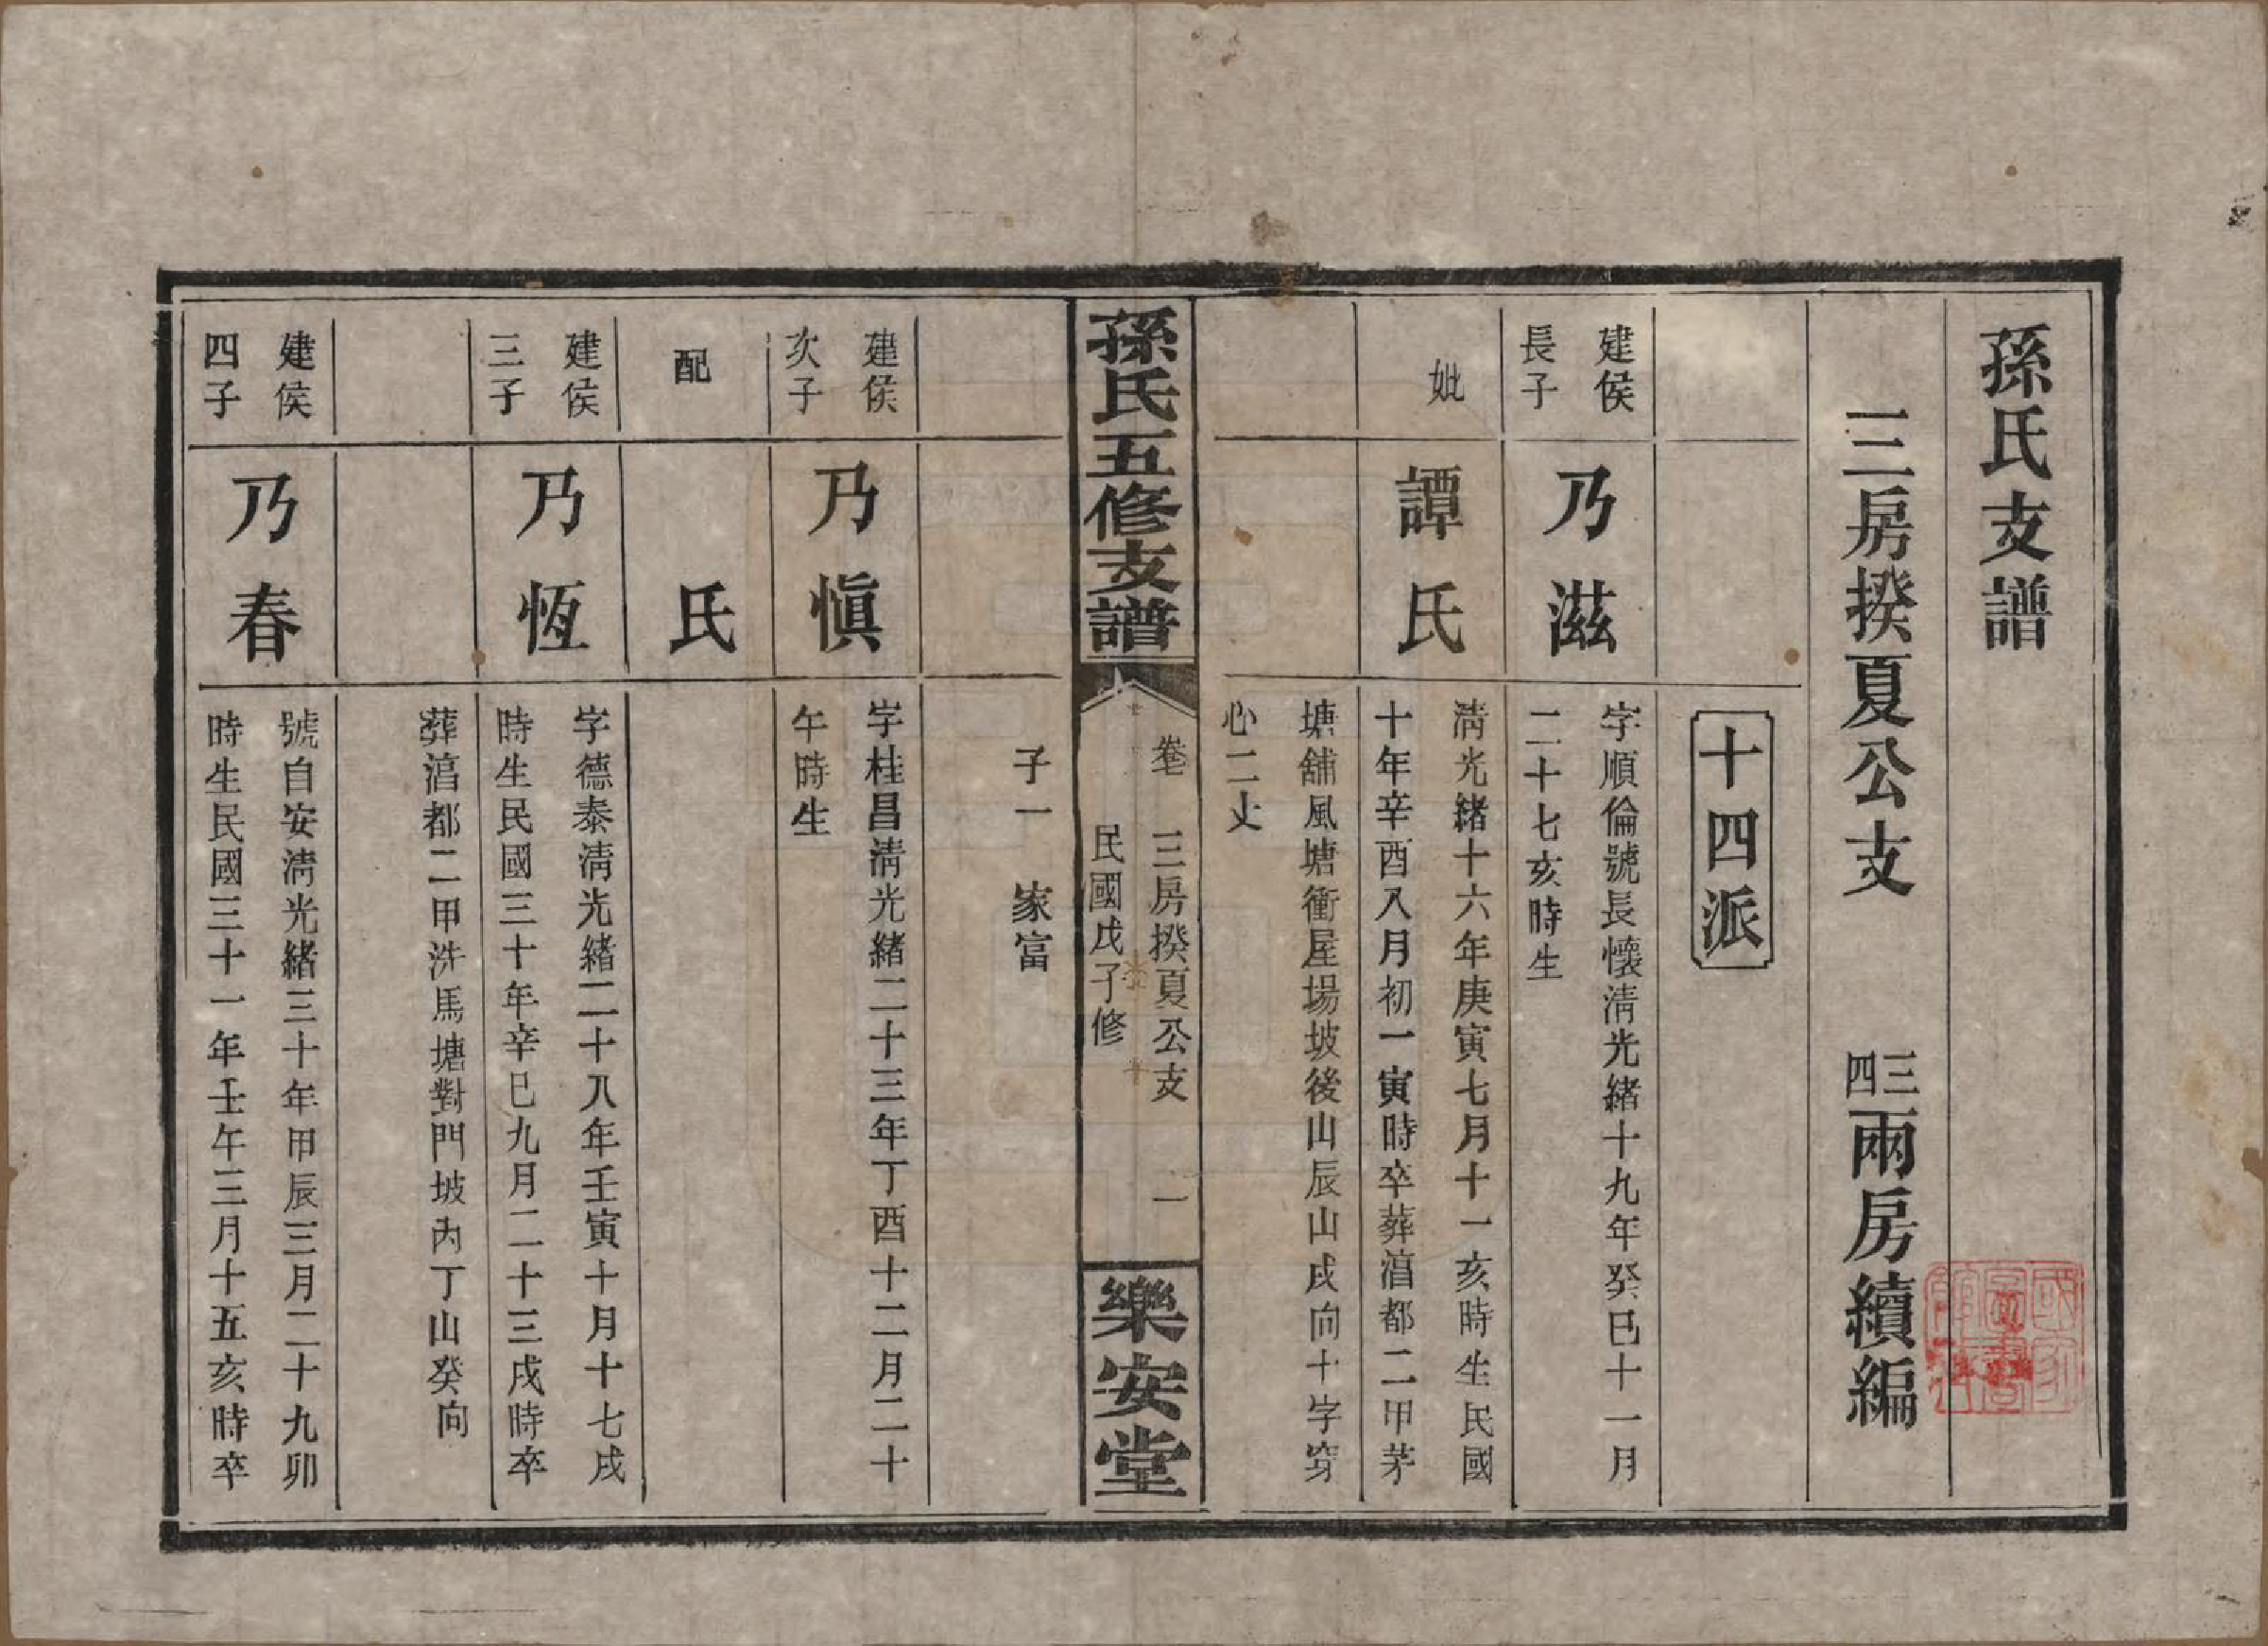 孫氏支譜
三房揆夏公支 三四兩房續編
十四派
建侯長子
乃滋
字順倫號長懷清光緒十九年癸巳十一月
二十七亥時生
妣
譚氏
清光緒十六年庚寅七月十一亥時生民國
十年辛酉八月初一寅時卒葬湻都二甲茅
塘舖風塘衝屋場坡後山辰山戌向十字穿
心二丈
孫氏五修支譜
卷七 三房揆夏公支 一
民國戊子修
樂安堂
子一 家富
建侯次子
乃愼
字桂昌清光緒二十三年丁酉十二月二十
午時生
配
氏
建侯三子
乃恆
字德泰清光緒二十八年壬寅十月十七戌
時生民國三十年辛巳九月二十三戌時卒
葬湻都二甲洗馬塘對門坡內丁山癸向
建侯四子
乃春
號自安清光緒三十年甲辰三月二十九卯
時生民國三十一年壬午三月十五亥時卒